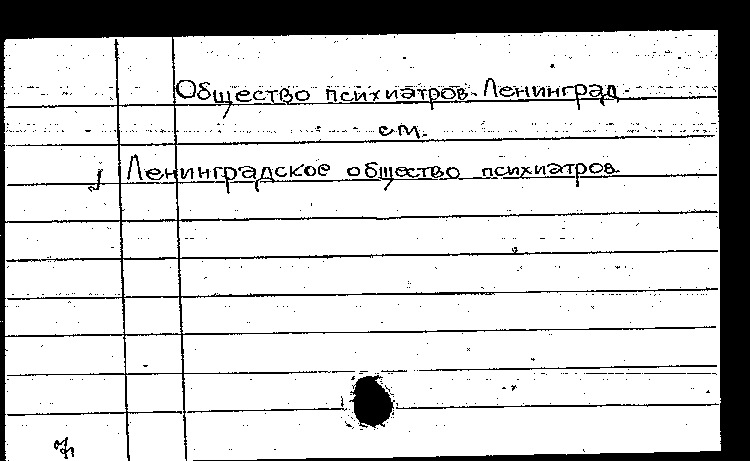 Общество психиатров. Ленинград.
см.
Ленинградское общество психиатров